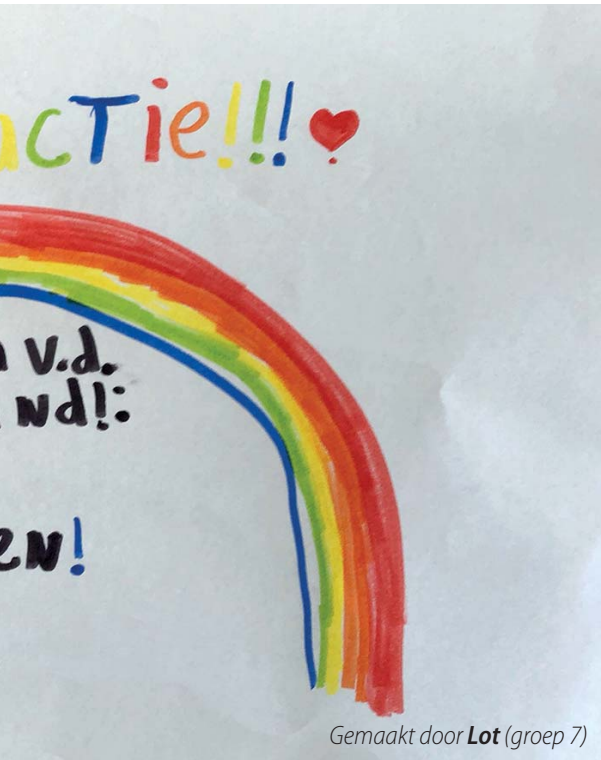 acTie!!!
v.d.
nd!:
en!
Gemaakt door Lot (groep 7)